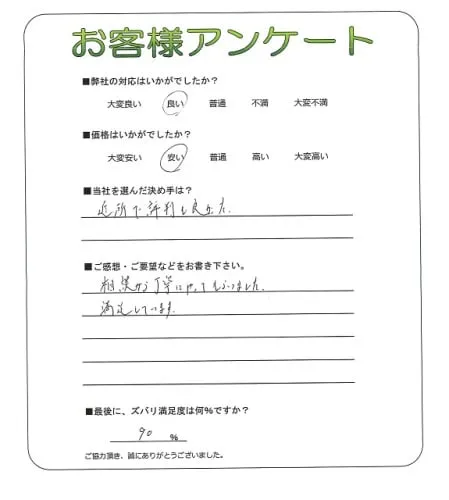 お客様アンケート
■弊社の対応はいかがでしたか?
大変良い 良い 普通 不満 大変不満
■価格はいかがでしたか?
大変安い 安い 普通 高い 大変高い
■当社を選んだ決め手は?
近所で評判も良かった。
■ご感想・ご要望などをお書き下さい。
相談から丁寧にやってもらいました。
満足しています。
■最後に、ズバリ満足度は何%ですか?
90 %
ご協力頂き、誠にありがとうございました。